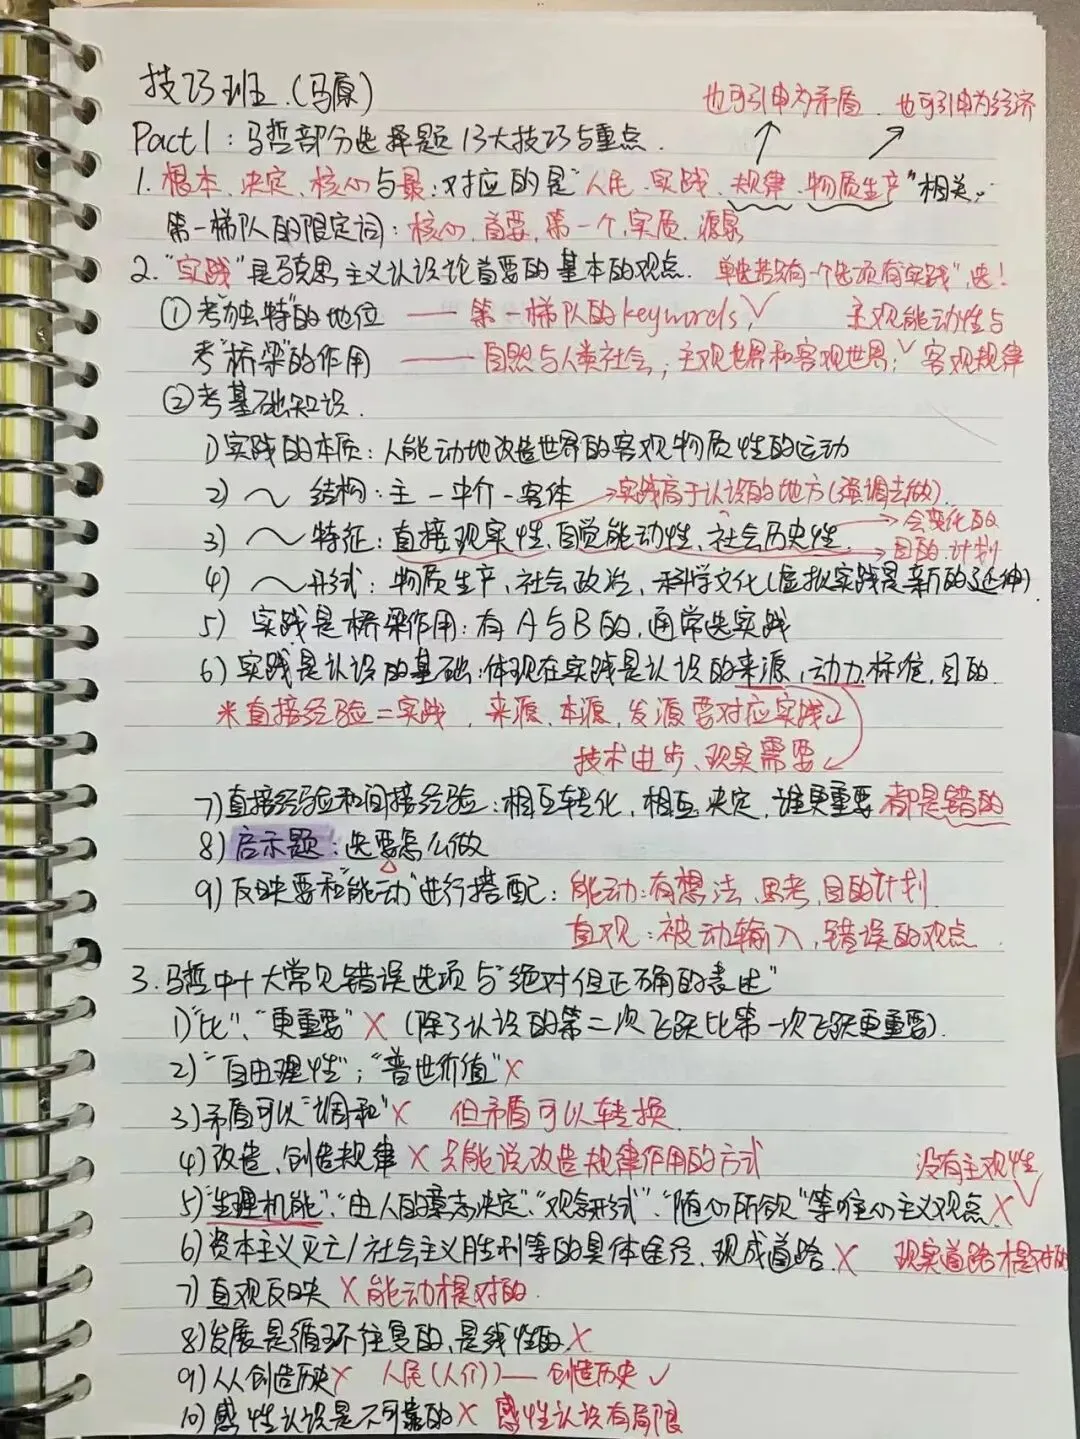 技巧班.(马原)
也可引申为矛盾 也可引申为经济
Part1:马哲部分选择题13大技巧与重点.
1.根本、决定、核心与最:对应的是"人民、实践、规律、物质生产"相关.
第一梯队的限定词:核心、首要、第一个、实质、源泉
2."实践"是马克思主义认识论首要的基本的观点. 单选若只有一个选项有"实践",选!
①考"独特"的地位 —— 第一梯队的keywords,✓ 主观能动性与
考"桥梁"的作用 —— 自然与人类社会;主观世界和客观世界;✓ 客观规律
②考基础知识.
1)实践的本质:人能动地改造世界的客观物质性的运动
2) ~ 结构:主-中介-客体 →实践高于认识的地方(强调去做)
3) ~ 特征:直接现实性、自觉能动性、社会历史性 →会变化的
→目的、计划
4) ~形式:物质生产、社会政治、科学文化(虚拟实践是新的延伸).
5) 实践是桥梁作用:有A与B的,通常选实践
6)实践是认识的基础:体现在实践是认识的来源,动力、标准,目的.
※直接经验=实践,来源、本源、发源要对应实践
技术进步、现实需要
7)直接经验和间接经验:相互转化,相互决定,谁更重要 都是错的
8)启示题:选要怎么做
9)反映要和"能动"进行搭配:能动:有想法、思考、目的计划
直观:被动输入,错误的观点.
3.马哲中十大常见错误选项与"绝对但正确的表述"
1)"比"、"更重要" X (除了认识的第二次飞跃比第一次飞跃更重要).
2)"自由理性";"普世价值" X
3)矛盾可以"调和" X 但矛盾可以转换.
4)改造、创造规律 X 只能说改造规律作用的方式
没有主观性
5)"生理机能"、"由人的意志决定"、"观念形式"、"随心所欲"等唯心主义观点 X ✓
6)资本主义灭亡/社会主义胜利等的具体途径、现成道路. X 现实道路才是对的
7)直观反映 X 能动才是对的.
8)发展是循环往复的,是线性的 X
9)人人创造历史 X 人民(人们)—创造历史 ✓
10)感性认识是不可靠的 X 感性认识有局限